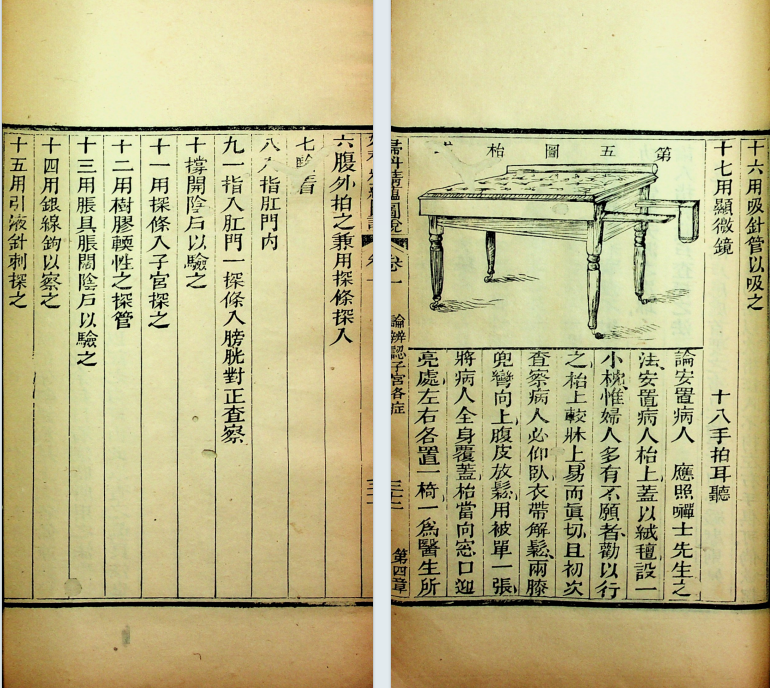 六腹外拍之兼用探條探入
七
八 指肛門内
九一指入肛門一探條入膀胱對正查察
十撐開陰戶以驗之
十一用探條入子宮探之
十二用樹膠輭性之探管
十三用脹具脹闊陰戶以驗之
十四用銀線鉤以察之
十五用引液針刺探之
十六用吸針管以吸之
十七用顯微鏡 十八手拍耳聽
第五圖枱
論安置病人 應照嘽士先生之
法安置病人枱上蓋以絨氊設一
小枕惟婦人多有不願者勸以行
之枱上較牀上易而眞切且初次
查察病人必仰臥衣帶解鬆兩膝
兜彎向上腹皮放鬆用被單一張
將病人全身覆蓋枱當向窓口迎
亮處左右各置一椅一爲醫生所
婦科精蘊圖說 卷一 論辨認子宮各症 第四章